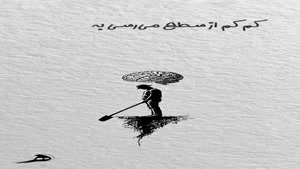 کم کم از سطح می‌رسی به